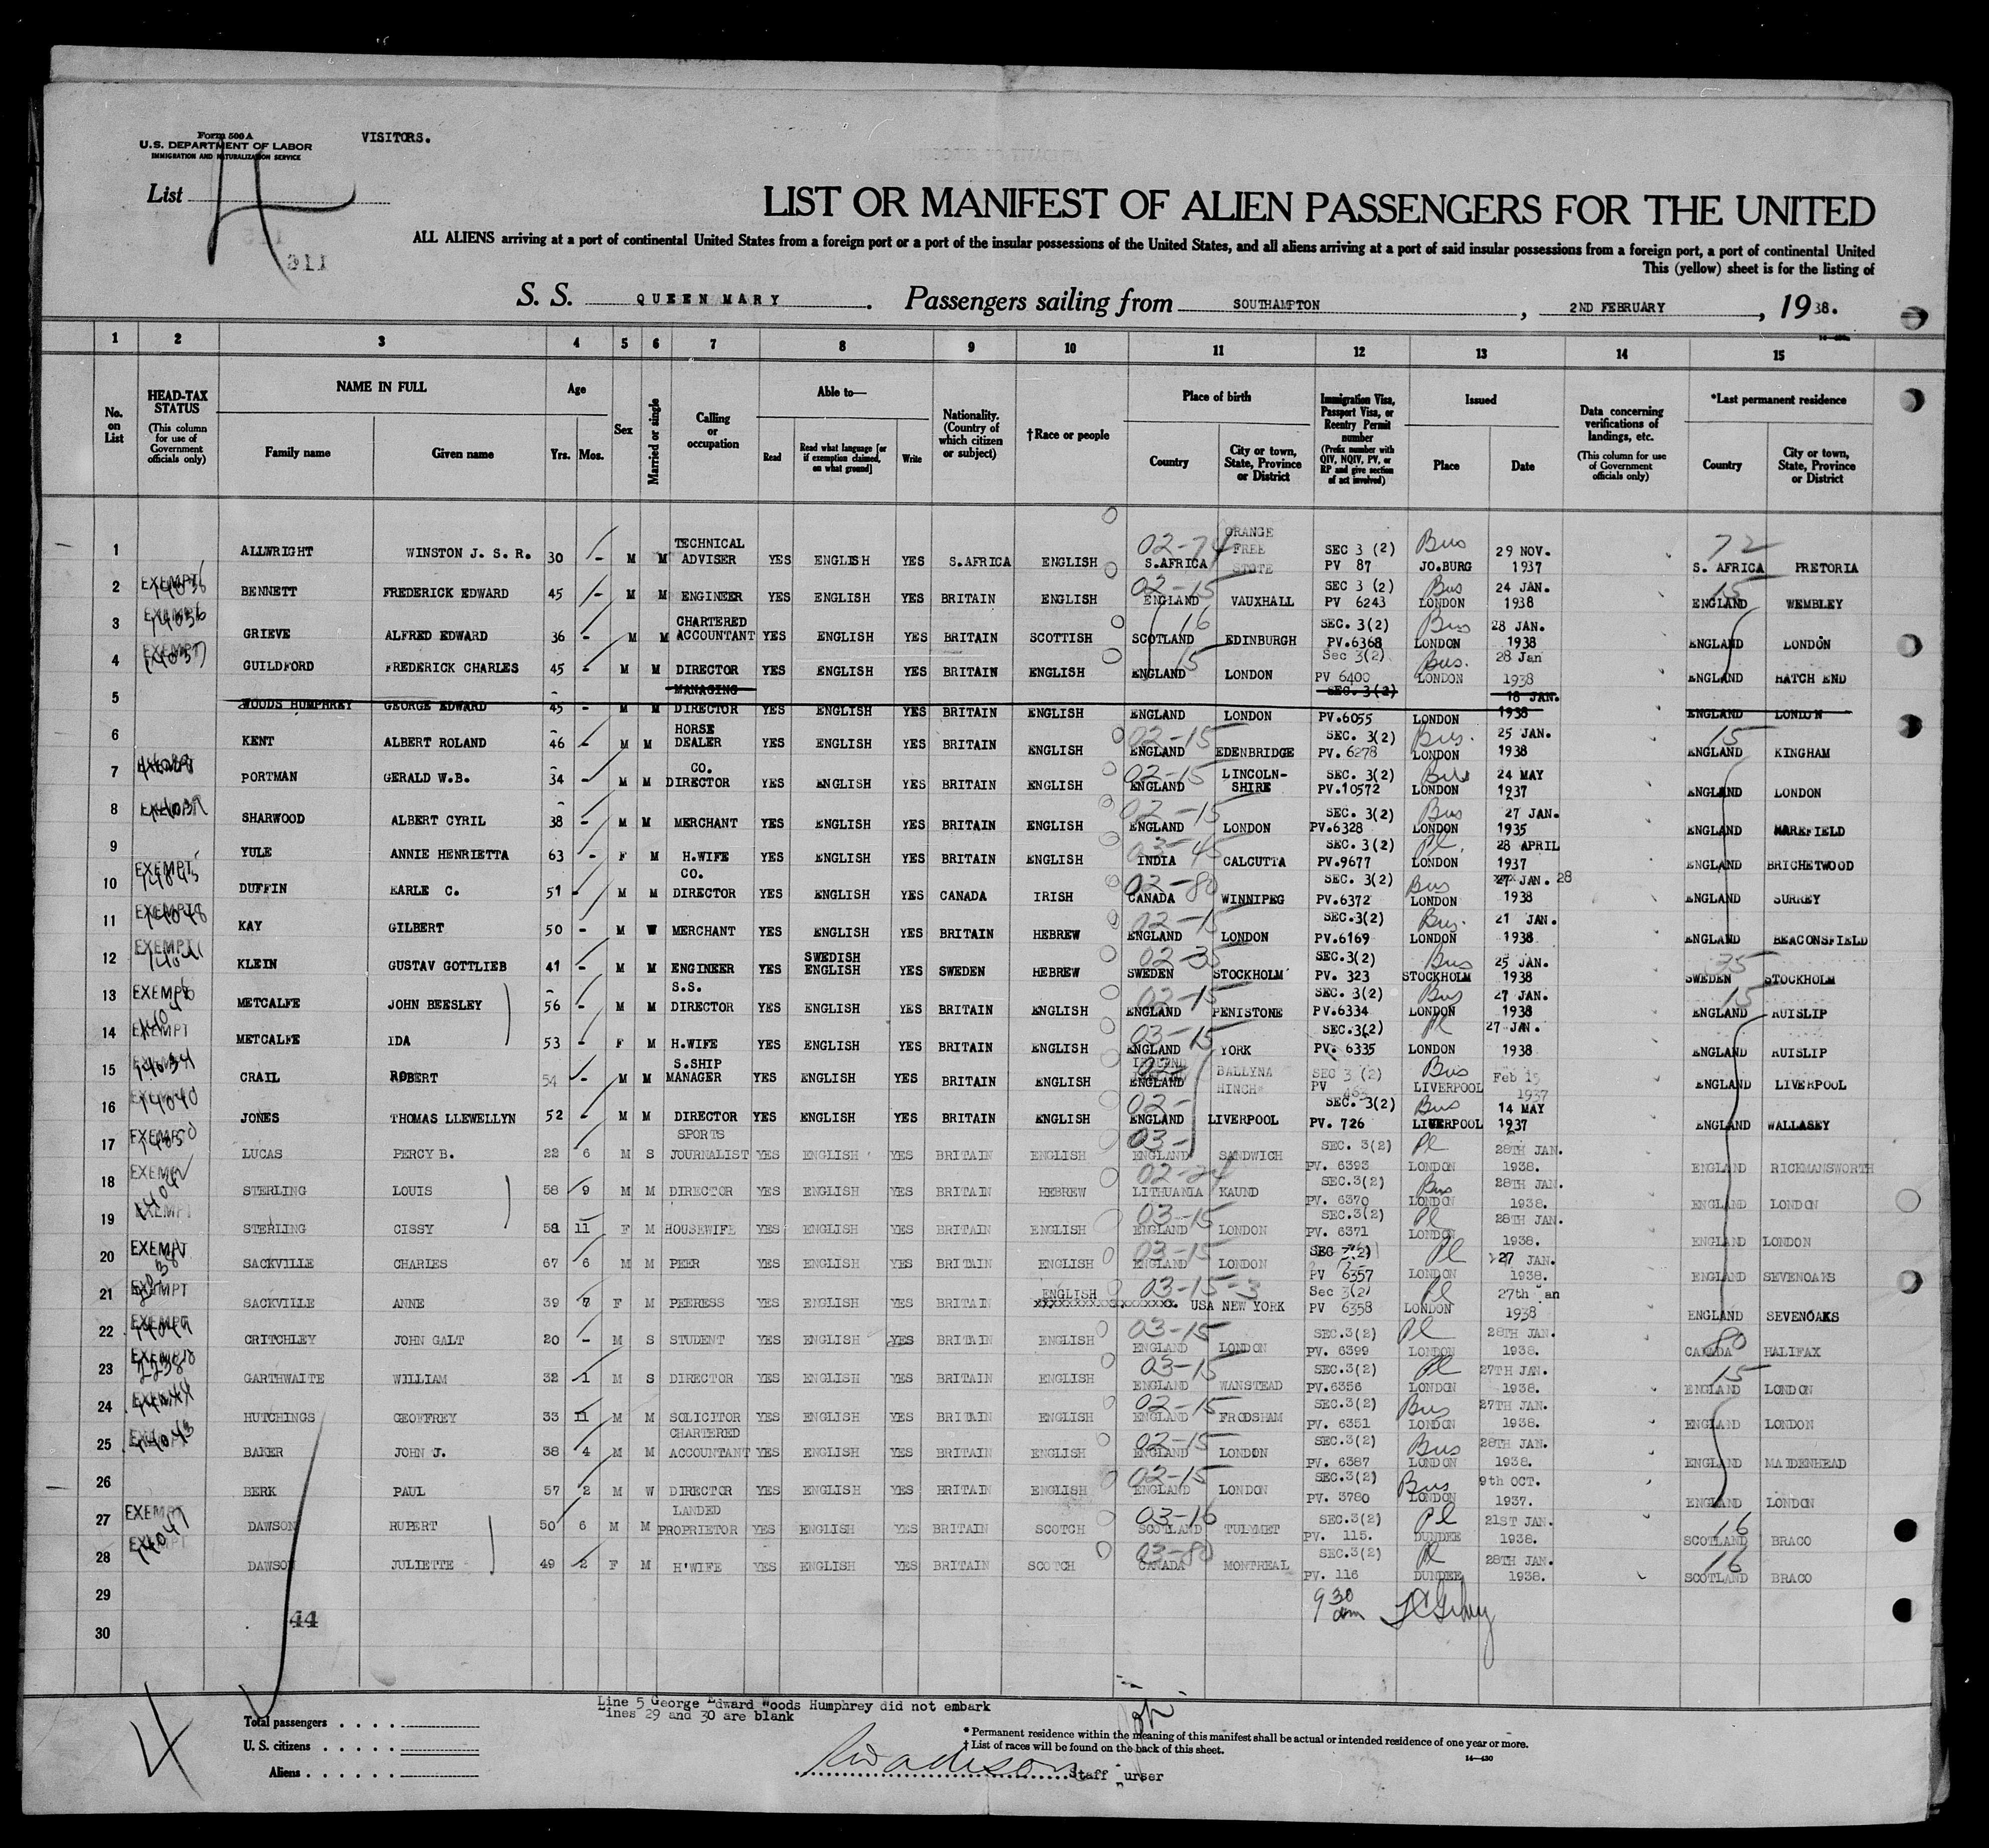 Form 500 A
U.S. DEPARTMENT OF LABOR
IMMIGRATION AND NATURALIZATION SERVICE
VISITORS.
List 4
911
LIST OR MANIFEST OF ALIEN PASSENGERS FOR THE UNITED
ALL ALIENS arriving at a port of continental United States from a foreign port or a port of the insular possessions of the United States, and all aliens arriving at a port of said insular possessions from a foreign port, a port of continental United
This (yellow) sheet is for the listing of
S. S. QUEEN MARY. Passengers sailing from SOUTHAMPTON, 2ND FEBRUARY, 1938.
1 2 3 4 5 6 7 8 9 10 11 12 13 14 15
No. on List
HEAD-TAX STATUS (This column for use of Government officials only)
NAME IN FULL Family name Given name
Age Yrs. Mos.
Sex
Married or single
Calling or occupation
Able to— Read Read what language [or if exemption claimed, on what ground] Write
Nationality. (Country of which citizen or subject)
†Race or people
Place of birth Country City or town, State, Province or District
Immigration Visa, Passport Visa, or Reentry Permit number (Prefix number with QIV, NQIV, PV, or RP and give section of act involved)
Issued Place Date
Data concerning verifications of landings, etc. (This column for use of Government officials only)
*Last permanent residence Country City or town, State, Province or District
1 ALLWRIGHT WINSTON J. S. R. 30 - M M TECHNICAL ADVISER YES ENGLISH YES S.AFRICA ENGLISH 02-74 S.AFRICA ORANGE FREE STATE SEC 3 (2) PV 87 Bus JO.BURG 29 NOV. 1937 72 S. AFRICA PRETORIA
2 EXEMPT BENNETT FREDERICK EDWARD 45 - M M ENGINEER YES ENGLISH YES BRITAIN ENGLISH 02-15 ENGLAND VAUXHALL SEC 3 (2) PV 6243 Bus LONDON 24 JAN. 1938 15 ENGLAND WEMBLEY
3 EXEMPT GRIEVE ALFRED EDWARD 36 - M M CHARTERED ACCOUNTANT YES ENGLISH YES BRITAIN SCOTTISH 16 SCOTLAND EDINBURGH SEC. 3(2) PV.6368 Bus LONDON 28 JAN. 1938 ENGLAND LONDON
4 EXEMPT GUILDFORD FREDERICK CHARLES 45 - M M DIRECTOR YES ENGLISH YES BRITAIN ENGLISH 15 ENGLAND LONDON Sec 3(2) PV 6400 Bus. LONDON 28 Jan 1938 ENGLAND HATCH END
5 WOODS HUMPHREY GEORGE EDWARD 45 - M M MANAGING DIRECTOR YES ENGLISH YES BRITAIN ENGLISH ENGLAND LONDON SEC. 3(2) PV.6055 LONDON 18 JAN. 1938 ENGLAND LONDON
6 KENT ALBERT ROLAND 46 - M M HORSE DEALER YES ENGLISH YES BRITAIN ENGLISH 02-15 ENGLAND EDENBRIDGE SEC. 3(2) PV. 6278 Bus. LONDON 25 JAN. 1938 15 ENGLAND KINGHAM
7 EXEMPT PORTMAN GERALD W.B. 34 - M M CO. DIRECTOR YES ENGLISH YES BRITAIN ENGLISH 02-15 ENGLAND LINCOLN-SHIRE SEC. 3(2) PV.10572 Bus LONDON 24 MAY 1937 ENGLAND LONDON
8 EXEMPT SHARWOOD ALBERT CYRIL 38 - M M MERCHANT YES ENGLISH YES BRITAIN ENGLISH 02-15 ENGLAND LONDON SEC. 3(2) PV.6328 Bus LONDON 27 JAN. 1935 ENGLAND MAREFIELD
9 YULE ANNIE HENRIETTA 63 - F M H.WIFE YES ENGLISH YES BRITAIN ENGLISH 03-45 INDIA CALCUTTA SEC. 3(2) PV.9677 Pl. LONDON 28 APRIL 1937 ENGLAND BRICHETWOOD
10 EXEMPT 14045 DUFFIN EARLE C. 51 - M M CO. DIRECTOR YES ENGLISH YES CANADA IRISH 02-80 CANADA WINNIPEG SEC. 3(2) PV.6372 Bus LONDON 27 JAN. 28 1938 ENGLAND SURREY
11 EXEMPT 14048 KAY GILBERT 50 - M W MERCHANT YES ENGLISH YES BRITAIN HEBREW 02-15 ENGLAND LONDON SEC.3(2) PV.6169 Bus. LONDON 21 JAN. 1938 ENGLAND BEACONSFIELD
12 EXEMPT 14041 KLEIN GUSTAV GOTTLIEB 41 - M M ENGINEER YES SWEDISH ENGLISH YES SWEDEN HEBREW 02-35 SWEDEN STOCKHOLM SEC.3(2) PV. 323 Bus STOCKHOLM 25 JAN. 1938 35 SWEDEN STOCKHOLM
13 EXEMPT METCALFE JOHN BEESLEY 56 - M M S.S. DIRECTOR YES ENGLISH YES BRITAIN ENGLISH 02-15 ENGLAND PENISTONE SEC. 3(2) PV.6334 Bus LONDON 27 JAN. 1938 15 ENGLAND RUISLIP
14 EXEMPT METCALFE IDA 53 - F M H.WIFE YES ENGLISH YES BRITAIN ENGLISH 03-15 ENGLAND YORK SEC.3(2) PV. 6335 Pl LONDON 27 JAN. 1938 ENGLAND RUISLIP
15 14034 CRAIL ROBERT 54 - M M S.SHIP MANAGER YES ENGLISH YES BRITAIN ENGLISH ENGLAND BALLYNA HINCH SEC 3 (2) PV 463 Bus LIVERPOOL Feb 15 1937 ENGLAND LIVERPOOL
16 14040 JONES THOMAS LLEWELLYN 52 - M M DIRECTOR YES ENGLISH YES BRITAIN ENGLISH 02- ENGLAND LIVERPOOL SEC. 3(2) PV. 726 Bus LIVERPOOL 14 MAY 1937 ENGLAND WALLASEY
17 EXEMPT 14050 LUCAS PERCY B. 22 6 M S SPORTS JOURNALIST YES ENGLISH YES BRITAIN ENGLISH 03- ENGLAND SANDWICH SEC. 3(2) PV. 6393 Pl LONDON 28TH JAN. 1938. ENGLAND RICKMANSWORTH
18 EXEMPT 14042 STERLING LOUIS 58 9 M M DIRECTOR YES ENGLISH YES BRITAIN HEBREW 02-24 LITHUANIA KAUND SEC.3(2) PV. 6370 Bus LONDON 28TH JAN. 1938. ENGLAND LONDON
19 EXEMPT STERLING CISSY 58 11 F M HOUSEWIFE YES ENGLISH YES BRITAIN ENGLISH 03-15 ENGLAND LONDON SEC.3(2) PV. 6371 Pl LONDON 28TH JAN. 1938. ENGLAND LONDON
20 EXEMPT SACKVILLE CHARLES 67 6 M M PEER YES ENGLISH YES BRITAIN ENGLISH 03-15 ENGLAND LONDON SEC 3(2) PV 6357 Pl LONDON 27 JAN. 1938. ENGLAND SEVENOAKS
21 EXEMPT SACKVILLE ANNE 39 7 F M PEERESS YES ENGLISH YES BRITAIN ENGLISH xxxxxxxxxxxxxxxxxx. 03-15-3 USA NEW YORK Sec 3(2) PV 6358 Pl LONDON 27th an 1938 ENGLAND SEVENOAKS
22 EXEMPT 14049 CRITCHLEY JOHN GALT 20 - M S STUDENT YES ENGLISH YES BRITAIN ENGLISH 03-15 ENGLAND LONDON SEC.3(2) PV. 6399 Pl LONDON 28TH JAN. 1938. 80 CANADA HALIFAX
23 EXEMPT 2238 GARTHWAITE WILLIAM 32 1 M S DIRECTOR YES ENGLISH YES BRITAIN ENGLISH 03-15 ENGLAND WANSTEAD SEC.3(2) PV.6356 Pl LONDON 27TH JAN. 1938. 15 ENGLAND LONDON
24 EXEMPT HUTCHINGS GEOFFREY 33 11 M M SOLICITOR YES ENGLISH YES BRITAIN ENGLISH 02-15 ENGLAND FRODSHAM SEC.3(2) PV. 6351 Bus LONDON 27TH JAN. 1938. ENGLAND LONDON
25 14043 BAKER JOHN J. 38 4 M M CHARTERED ACCOUNTANT YES ENGLISH YES BRITAIN ENGLISH 02-15 ENGLAND LONDON SEC.3(2) PV. 6387 Bus LONDON 28TH JAN. 1938. ENGLAND MAIDENHEAD
26 BERK PAUL 57 2 M W DIRECTOR YES ENGLISH YES BRITAIN ENGLISH 02-15 ENGLAND LONDON SEC.3(2) PV. 3780 Bus LONDON 9th OCT. 1937. ENGLAND LONDON
27 EXEMPT DAWSON RUPERT 50 6 M M LANDED PROPRIETOR YES ENGLISH YES BRITAIN SCOTCH 03-16 SCOTLAND TULYMET SEC.3(2) PV. 115. Pl DUNDEE 21ST JAN. 1938. 16 SCOTLAND BRACO
28 EXEMPT 14047 DAWSON JULIETTE 49 2 F M H'WIFE YES ENGLISH YES BRITAIN SCOTCH 03-80 CANADA MONTREAL SEC.3(2) PV. 116 Pl DUNDEE 28TH JAN. 1938. 16 SCOTLAND BRACO
29 9 30 am
30
44
4
Line 5 George Edward Woods Humphrey did not embark
Lines 29 and 30 are blank
Total passengers
U. S. citizens
Aliens
* Permanent residence within the meaning of this manifest shall be actual or intended residence of one year or more.
† List of races will be found on the back of this sheet.
14—430
Staff urser